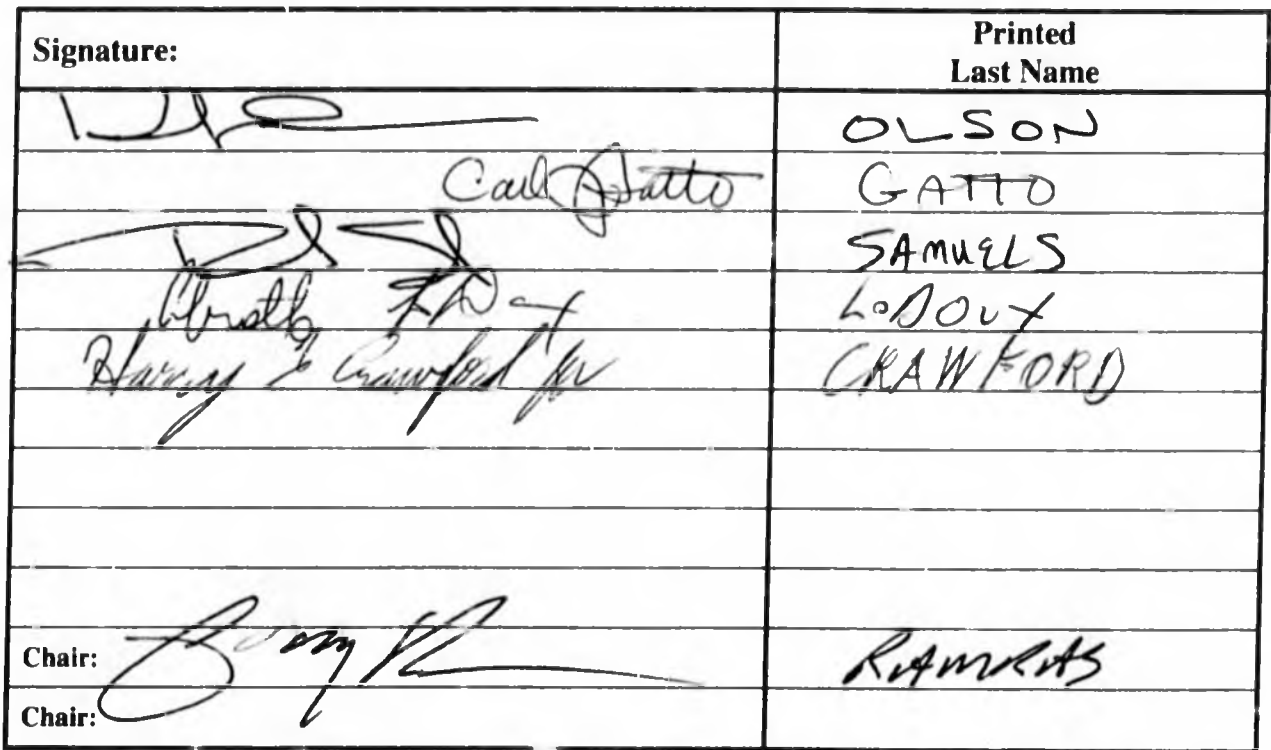 Signature: Printed
Last Name
OLSON
Carl J Gatto GATTO
SAMUELS
LeDOUX
Harry T Crawford Jr CRAWFORD
Chair: RAMRAS
Chair: